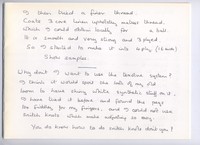 I then tried a finer thread.
Could I save linen upholstery walnut thread.
Which I could obtain locally for a ball
It is smooth and very strong and 3 plyed
So I started to make it into 6 ply (16 ever)
Show samples.
Why don't I want to use the Bendine system?
I think it would spoil the balls of my old
loom to have shiny white synthetic stuff on it.
I have tried it before and found the pegs
too fiddly for my fingers, and I could not use
snitch knots which make adjusting so easy.
You do know how to do snitch knots don't you?